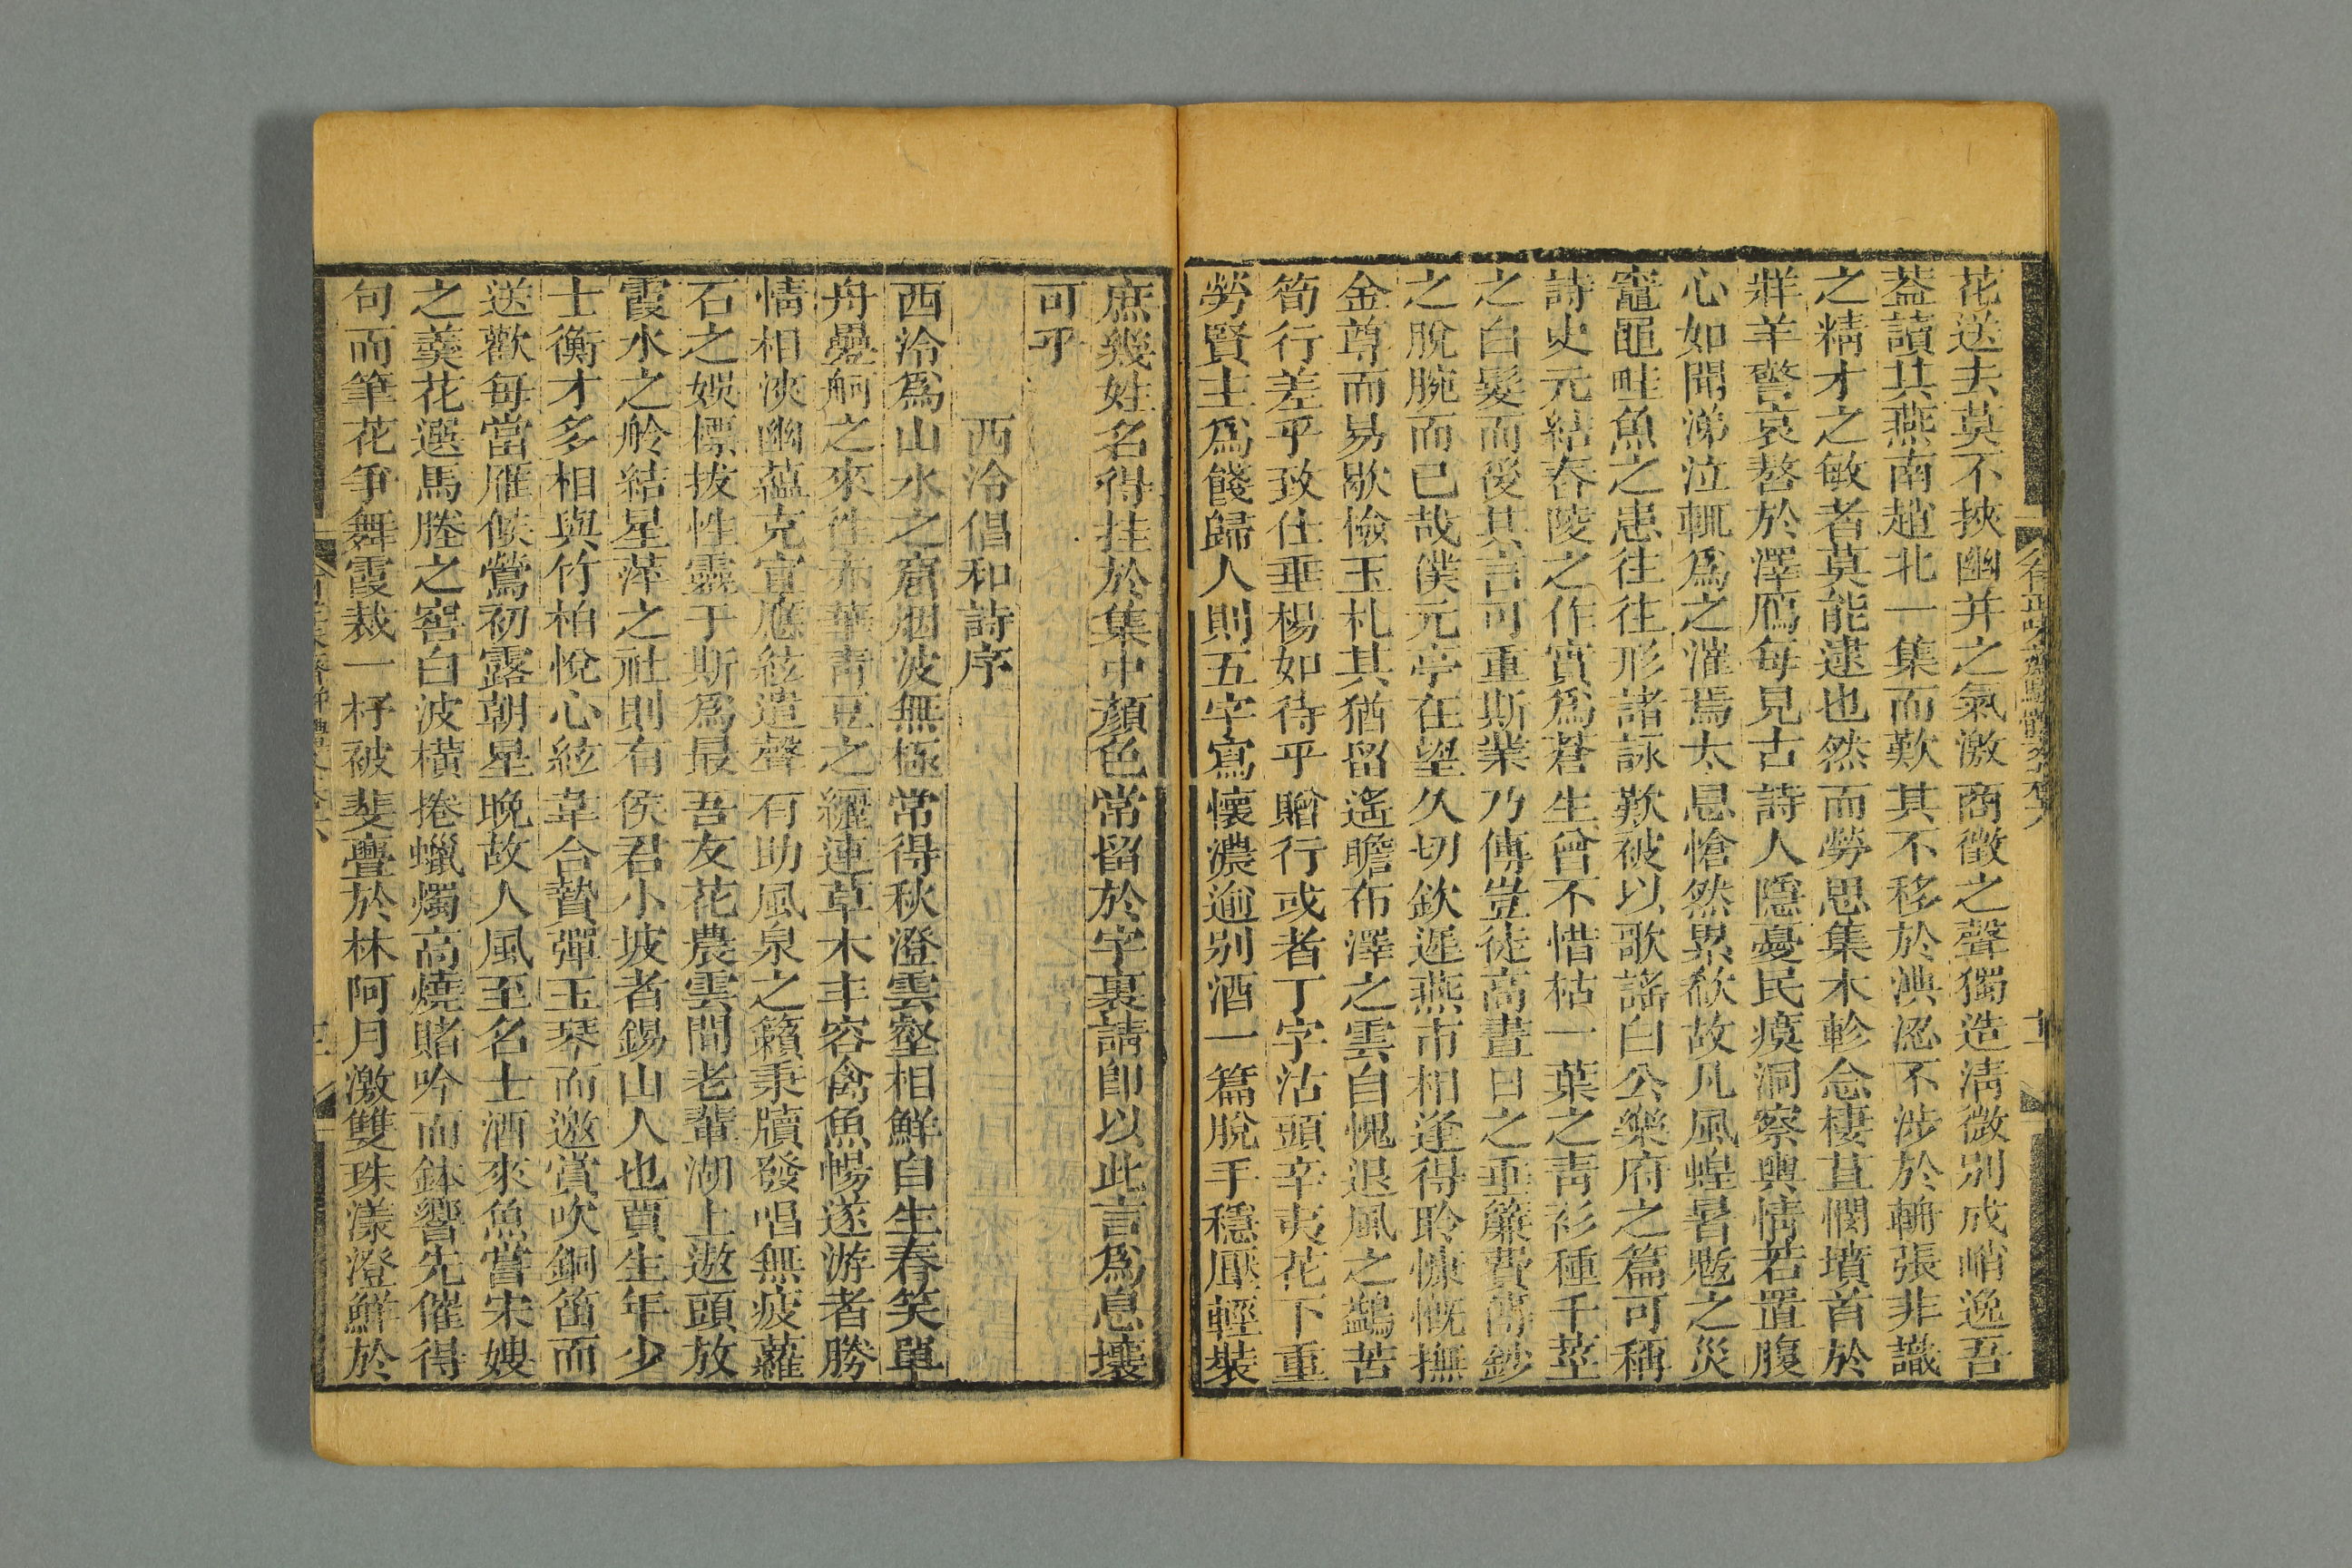 花送夫莫不挾幽并之氣激商徵之聲獨造淸微别成峭逸吾
葢讀其燕南趙北一集而歎其不移於淟涊不涉於輈張非識
之精才之敏者莫能逮也然而勞思集木軫念棲苴憫墳首於
牂羊警哀嗸於澤鴈每見古詩人隱憂民瘼洞察輿情若置腹
心如聞涕泣輒爲之漼焉太息愴然累欷故凡風蝗暑魃之災
竈黽畦魚之患往往形諸詠歎被以歌謠白公樂府之篇可稱
詩史元結舂陵之作實爲蒼生曾不惜枯一葉之靑衫種千莖
之白髮而後其言可重斯業乃傳豈徒高晝日之垂簾費傭鈔
之脫腕而已哉僕元亭在望久切欽遲燕市相逢得聆慷慨撫
金尊而易歇檢玉札其猶留遙瞻布澤之雲自愧退風之鷁苦
筍行差乎致仕垂楊如待乎贈行或者丁字沽頭辛夷花下重
勞賢主爲餞歸人則五字寫懷濃逾别酒一篇脫手穩壓輕裝
庶幾姓名得挂於集中顏色常留於字裏請卽以此言爲息壤
可乎
西泠倡和詩序
西泠爲山水之窟烟波無極常得秋澄雲壑相鮮自生春笑單
舟疊舸之來往朱華靑豆之纚連草木丰容禽魚暢遂游者勝
情相浹幽蘊克宣應絃遣聲有助風泉之籟秉牘發唱無疲蘿
石之娛標拔性靈于斯爲最吾友花農雲間老輩湖上遨頭放
霞水之舲結星萍之社則有侯君小坡者錫山人也賈生年少
士衡才多相與竹柏悅心絃韋合贄彈玉琴而邀賞吹銅笛而
送歡每當雁候鶯初露朝星晚故人風至名士酒來魚嘗宋嫂
之羹花選馬塍之窖白波橫捲蠟燭高燒賭吟而鉢響先催得
句而筆花爭舞霞裁一杼被斐亹於林阿月激雙珠漾澄鮮於